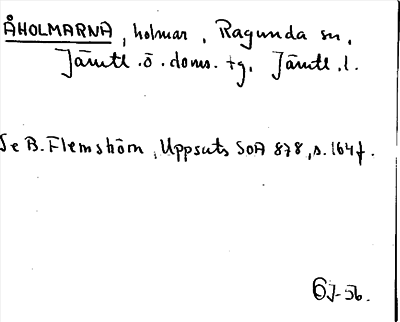 ÅHOLMARNA, holmar, Ragunda sn,
Jämtl. ö. doms. tg. Jämtl. l.
Se B. Flemström, Uppsats SOA 878, s. 164 f.